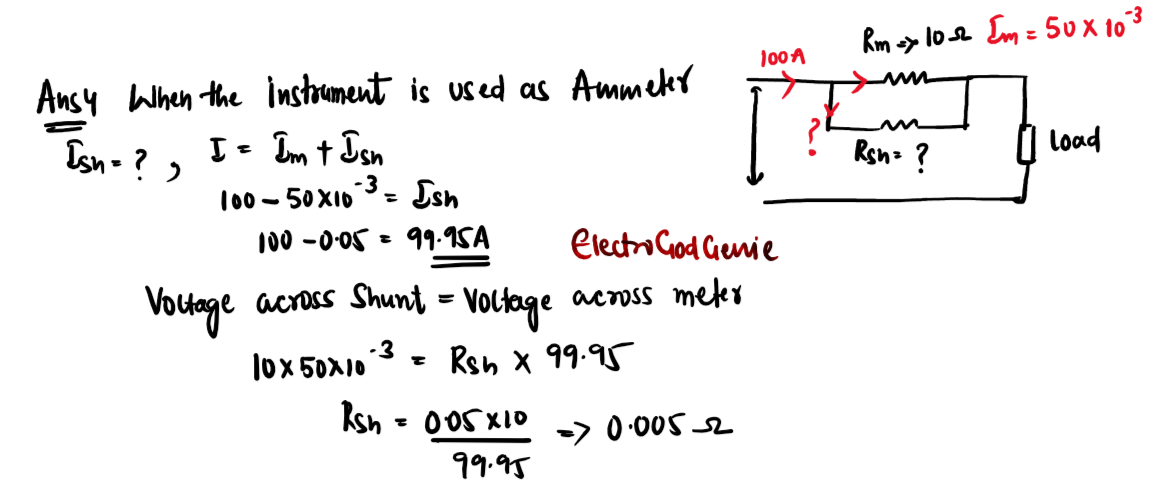 Ans4 When the instrument is used as Ammeter
Ish = ? , I = Im + Ish
100 - 50×10⁻³ = Ish
100 - 0.05 = 99.95A
ElectroGodGenie
Voltage across Shunt = Voltage across meter
10×50×10⁻³ = Rsh × 99.95
Rsh = 0.05×10 / 99.95 => 0.005 Ω
Rm => 10 Ω Im = 50 × 10⁻³
100A
?
Rsh = ?
load